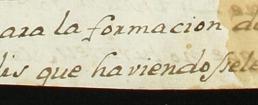 ara la formacion d
lis que haviendossele